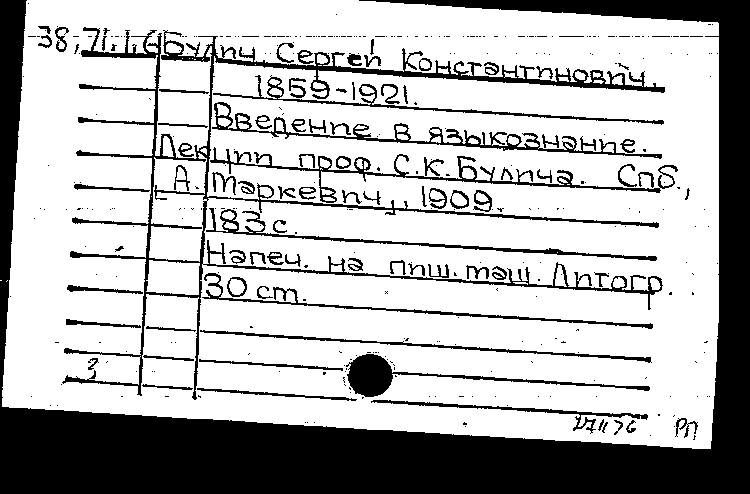 38.71.1.6 Булич, Сергей Константинович,
1859-1921.
Введение в языкознание.
Лекции проф. С.К. Булича. Спб.,
[А. Маркевич], 1909.
183 с.
Напеч. на пиш. маш. Литогр.
30 cm.
3
РП